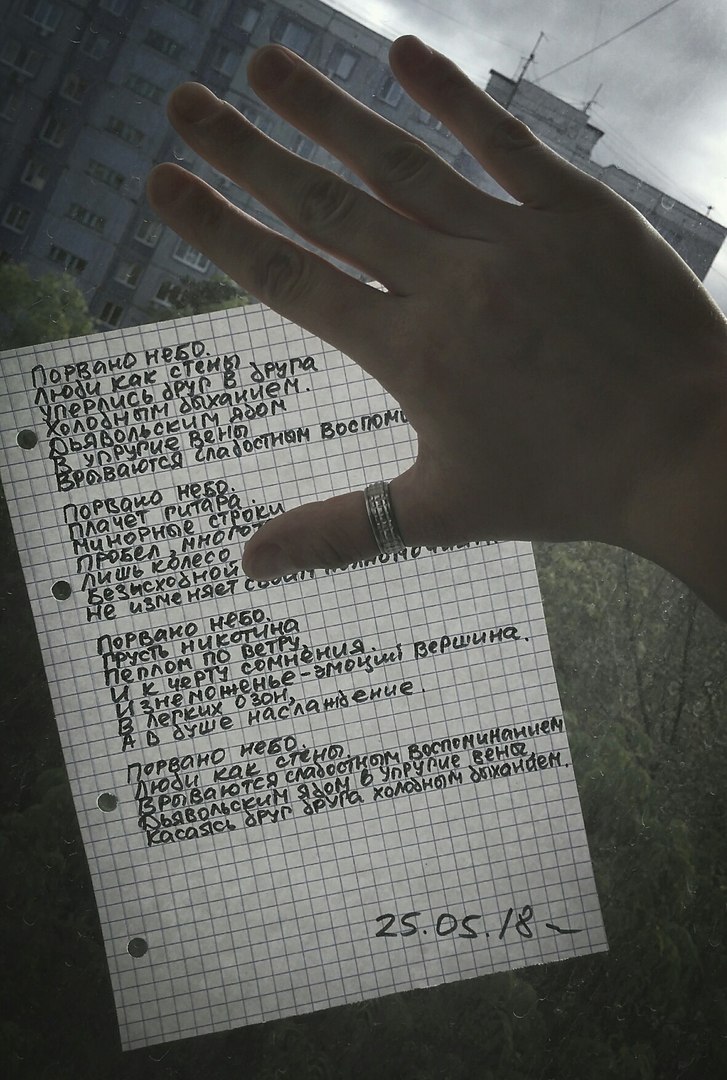 Порвано небо.
Люди как стены
Упёрлись друг в друга
Холодным дыханием.
Дьявольским ядом
В упругие вены
Врываются сладостным
Порвано небо.
Плачет гитара.
Минорные строки
Пробел,
Лишь колесо
Безысходной
Не изменяет своим
Порвано небо.
Грусть никотина
Пеплом по ветру,
И к черту сомнения.
Изнеможенье-эмоций вершина.
В легких озон,
А в душе наслаждение.
Порвано небо.
Люди как стены.
Врываются сладостным воспоминанием
Дьявольским ядом в упругие вены
Касаясь друг друга холодным дыханием.
25.05.18